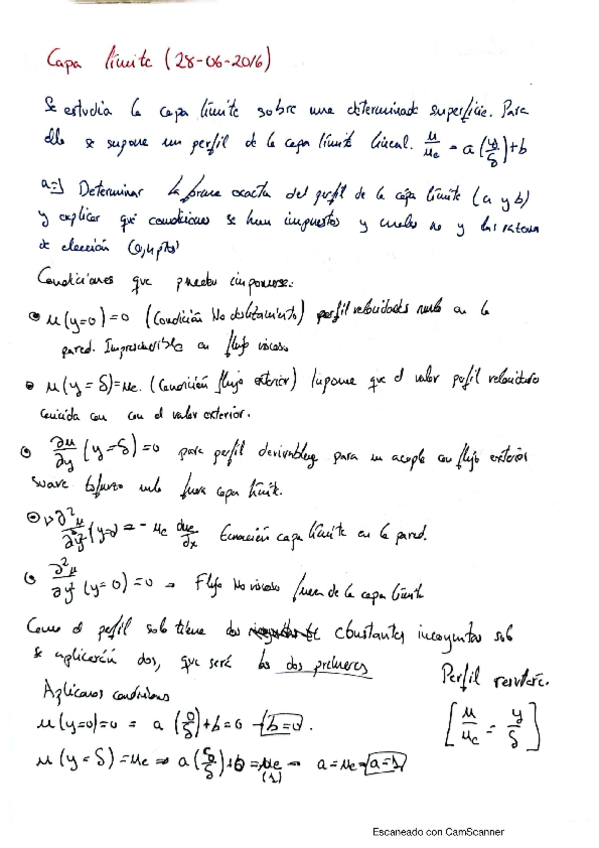 Capa límite (28-06-2016)
Se estudia la capa límite sobre una determinada superficie. Para
ello se supone un perfil de la capa límite lineal. u/ue = a(y/δ)+b
a=) Determinar la forma exacta del perfil de la capa límite (a y b)
y explicar qué condiciones se han impuestos y cuales no y las razones
de elección (0,4 pto)
Condiciones que pueden imponerse:
u(y=0)=0 (Condición No deslizamiento) perfil velocidades nulo en la
pared. Imprescindible en flujo viscoso
u(y=δ)=ue. (Condición flujo exterior) Impone que el valor perfil velocidades
coincida con con el valor exterior.
∂u/∂y (y=δ)=0 para perfil derivable y para un acople con flujo exterior
suave Esfuerzo nulo fuera capa límite.
ν ∂²u/∂y² (y=0) = - ue due/dx Ecuación capa límite en la pared.
∂²u/∂y² (y=0)=0 → Flujo No viscoso fuera de la capa límite
Como el perfil solo tiene dos constantes incognitas solo
se aplicarán dos, que será las dos primeras
Perfil
Aplicamos condiciones
u(y=0)=0 = a(0/δ)+b=0 b=0.
[u/ue = y/δ]
u(y=δ)=ue ⇒ a(δ/δ)+b=ue (1) → a=ue a=1